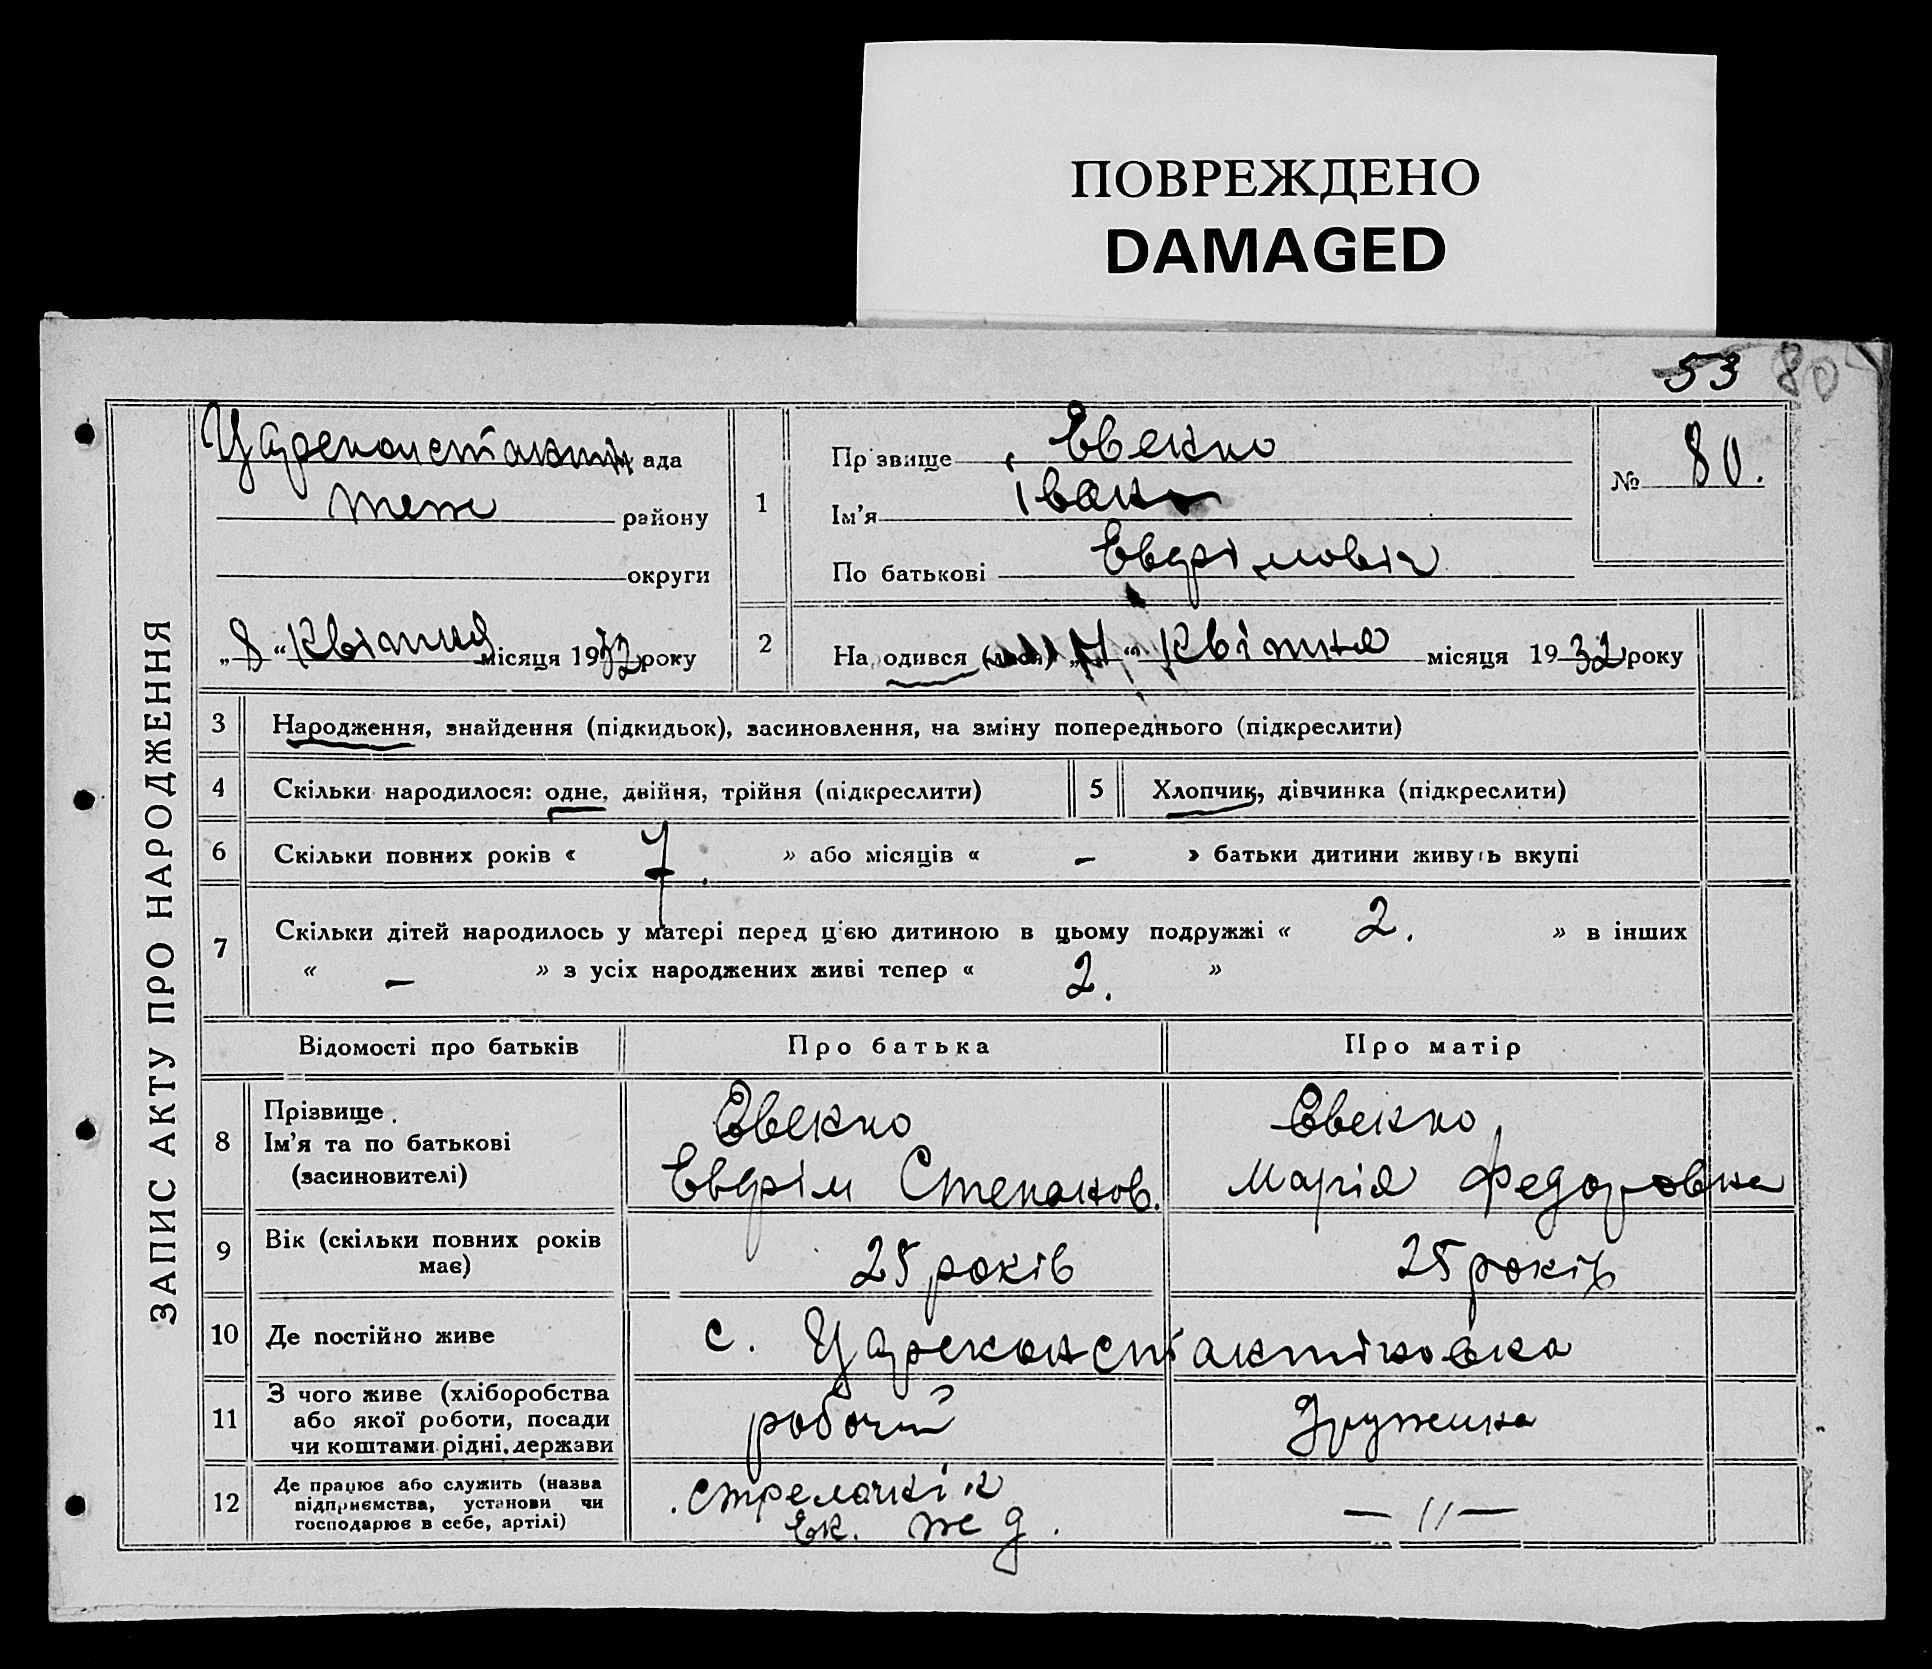 ПОВРЕЖДЕНО
DAMAGED
53 80
ЗАПИС АКТУ ПРО НАРОДЖЕННЯ
Цареконстантин ада
теж району
округи
„8“ Квітня місяця 1932 року
1
Прізвище Евекно
Ім’я Іван
По батькові Евдрімовіч
№ 80.
2
Народився „7“ Квітня місяця 1932 року
3 Народження, знайдення (підкидьок), засиновлення, на зміну попереднього (підкреслити)
4 Скільки народилося: одне, двійня, трійня (підкреслити) 5 Хлопчик, дівчинка (підкреслити)
6 Скільки повних років « 7. » або місяців « – » батьки дитини живуть вкупі
7 Скільки дітей народилось у матері перед цією дитиною в цьому подружжі « 2. » в інших
« – » з усіх народжених живі тепер « 2. »
Відомості про батьків Про батька Про матір
8 Прізвище
Ім’я та по батькові
(засиновителі)
Евекно
Евдрім Степанов.
Евекно
Марія Федоровна
9 Вік (скільки повних років
має)
25 років 25 років
10 Де постійно живе с. Цареконстантіновка
11 З чого живе (хліборобства
або якої роботи, посади
чи коштами рідні, держави
робочій Дружина
12 Де працює або служить (назва
підприємства, установи чи
господарює в себе, артілі)
стрелочнік
Ек. ж д.
— 11 —